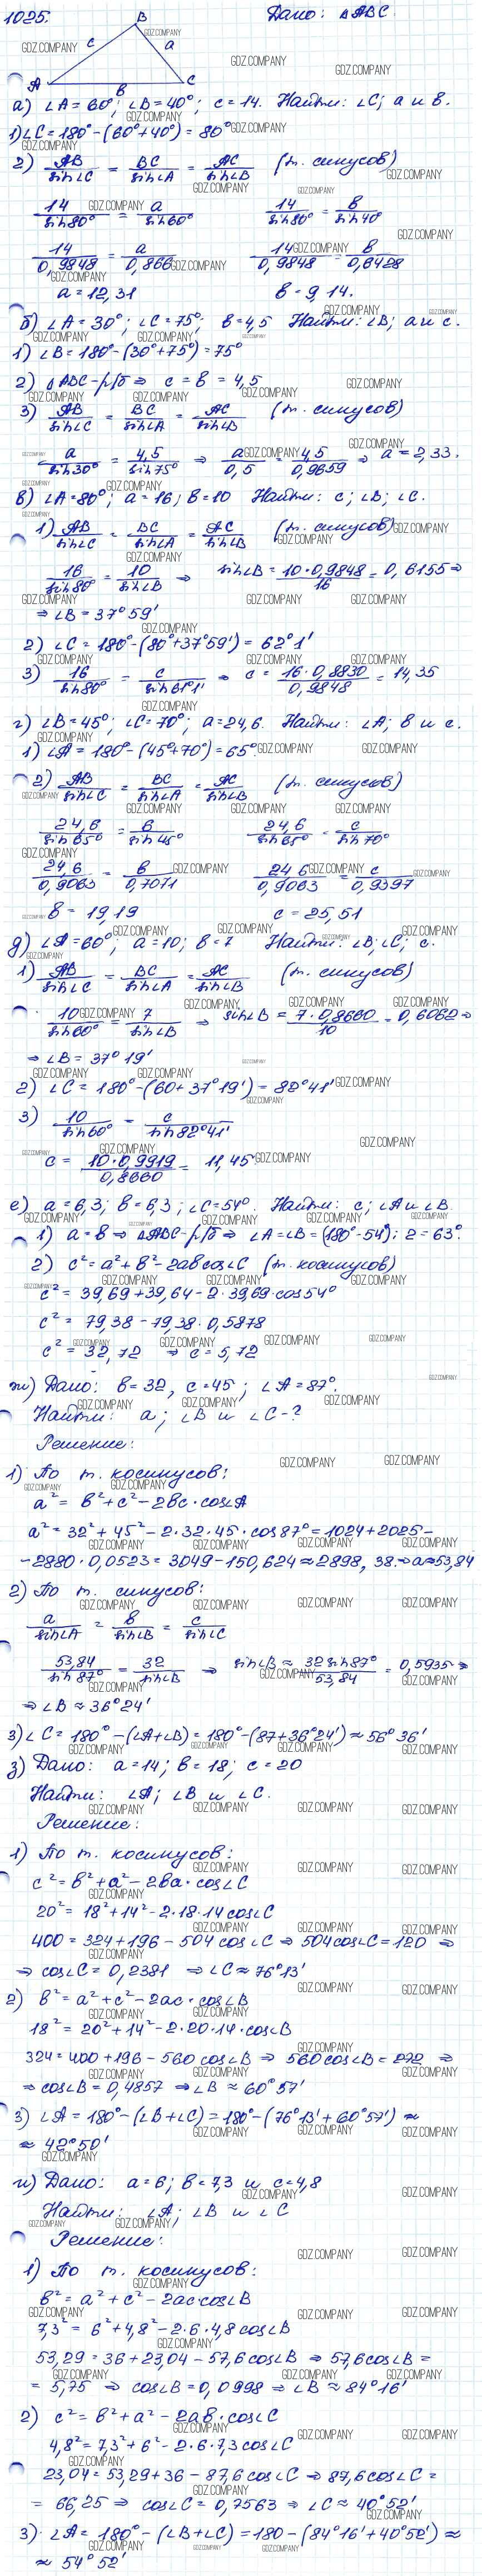 1025.
Дано: △ABC.
B
c a
A в C
а) ∠A = 60°; ∠B = 40°; c = 14. Найти: ∠C; a и в.
1) ∠C = 180° - (60° + 40°) = 80°
2) AB/sin∠C = BC/sin∠A = AC/sin∠B (т. синусов)
14/sin80° = a/sin60° 14/sin80° = в/sin40°
14/0,9848 = a/0,866 14/0,9848 = в/0,6428
a = 12,31 в = 9,14.
б) ∠A = 30°; ∠C = 75°; в = 4,5 Найти: ∠B; a и c.
1) ∠B = 180° - (30° + 75°) = 75°
2) △ABC - р/б ⇒ c = в = 4,5
3) AB/sin∠C = BC/sin∠A = AC/sin∠B (т. синусов)
a/sin30° = 4,5/sin75° ⇒ a/0,5 = 4,5/0,9659 ⇒ a = 2,33.
в) ∠A = 80°; a = 16; в = 10 Найти: c; ∠B; ∠C.
1) AB/sin∠C = BC/sin∠A = AC/sin∠B (т. синусов)
16/sin80° = 10/sin∠B ⇒ sin∠B = 10·0,9848/16 = 0,6155 ⇒
⇒ ∠B = 37°59'
2) ∠C = 180° - (80° + 37°59') = 62°1'
3) 16/sin80° = c/sin61°1' ⇒ c = 16·0,8830/0,9848 = 14,35
г) ∠B = 45°; ∠C = 70°; a = 24,6. Найти: ∠A; в и c.
1) ∠A = 180° - (45° + 70°) = 65°
2) AB/sin∠C = BC/sin∠A = AC/sin∠B (т. синусов)
24,6/sin65° = в/sin45° 24,6/sin65° = c/sin70°
24,6/0,9063 = в/0,7071 24,6/0,9063 = c/0,9397
в = 19,19 c = 25,51
д) ∠A = 60°; a = 10; в = 7 Найти: ∠B; ∠C; c.
1) AB/sin∠C = BC/sin∠A = AC/sin∠B (т. синусов)
10/sin60° = 7/sin∠B ⇒ sin∠B = 7·0,8660/10 = 0,6062 ⇒
⇒ ∠B = 37°19'
2) ∠C = 180° - (60 + 37°19') = 82°41'
3) 10/sin60° = c/sin82°41'
c = 10·0,9919/0,8660 = 11,45
е) a = 6,3; в = 6,3; ∠C = 54°. Найти: c; ∠A и ∠B.
1) a = в ⇒ △ABC - р/б ⇒ ∠A = ∠B = (180° - 54°) : 2 = 63°.
2) c² = a² + в² - 2aв cos∠C (т. косинусов)
c² = 39,69 + 39,64 - 2·39,69·cos54°
c² = 79,38 - 79,38·0,5878
c² = 32,72 ⇒ c = 5,72
ж) Дано: в = 32, c = 45; ∠A = 87°.
Найти: a; ∠B и ∠C - ?
Решение:
1) По т. косинусов:
a² = в² + c² - 2вc·cosA
a² = 32² + 45² - 2·32·45·cos87° = 1024 + 2025 -
- 2880·0,0523 = 3049 - 150,624 ≈ 2898,38 ⇒ a ≈ 53,84
2) По т. синусов:
a/sin∠A = в/sin∠B = c/sin∠C
53,84/sin87° = 32/sin∠B ⇒ sin∠B ≈ 32 sin87°/53,84 = 0,5935 ⇒
⇒ ∠B ≈ 36°24'
3) ∠C = 180° - (∠A + ∠B) = 180° - (87 + 36°24') ≈ 56°36'
з) Дано: a = 14; в = 18; c = 20
Найти: ∠A; ∠B и ∠C.
Решение:
1) По т. косинусов:
c² = в² + a² - 2вa·cos∠C
20² = 18² + 14² - 2·18·14 cos∠C
400 = 324 + 196 - 504 cos∠C ⇒ 504 cos∠C = 120 ⇒
⇒ cos∠C = 0,2381 ⇒ ∠C ≈ 76°13'
2) в² = a² + c² - 2ac·cos∠B
18² = 20² + 14² - 2·20·14·cos∠B
324 = 400 + 196 - 560 cos∠B ⇒ 560 cos∠B = 272 ⇒
⇒ cos∠B = 0,4857 ⇒ ∠B ≈ 60°57'
3) ∠A = 180° - (∠B + ∠C) = 180° - (76°13' + 60°57') ≈
≈ 42°50'
и) Дано: a = 6; в = 7,3 и c = 4,8
Найти: ∠A; ∠B и ∠C
Решение:
1) По т. косинусов:
в² = a² + c² - 2ac cos∠B
7,3² = 6² + 4,8² - 2·6·4,8 cos∠B
53,29 = 36 + 23,04 - 57,6 cos∠B ⇒ 57,6 cos∠B =
= 5,75 ⇒ cos∠B = 0,0998 ⇒ ∠B ≈ 84°16'
2) c² = в² + a² - 2aв·cos∠C
4,8² = 7,3² + 6² - 2·6·7,3 cos∠C
23,04 = 53,29 + 36 - 87,6 cos∠C ⇒ 87,6 cos∠C =
= 66,25 ⇒ cos∠C = 0,7563 ⇒ ∠C ≈ 40°52'
3) ∠A = 180° - (∠B + ∠C) = 180 - (84°16' + 40°52') ≈
≈ 54°52'
GDZ.COMPANY